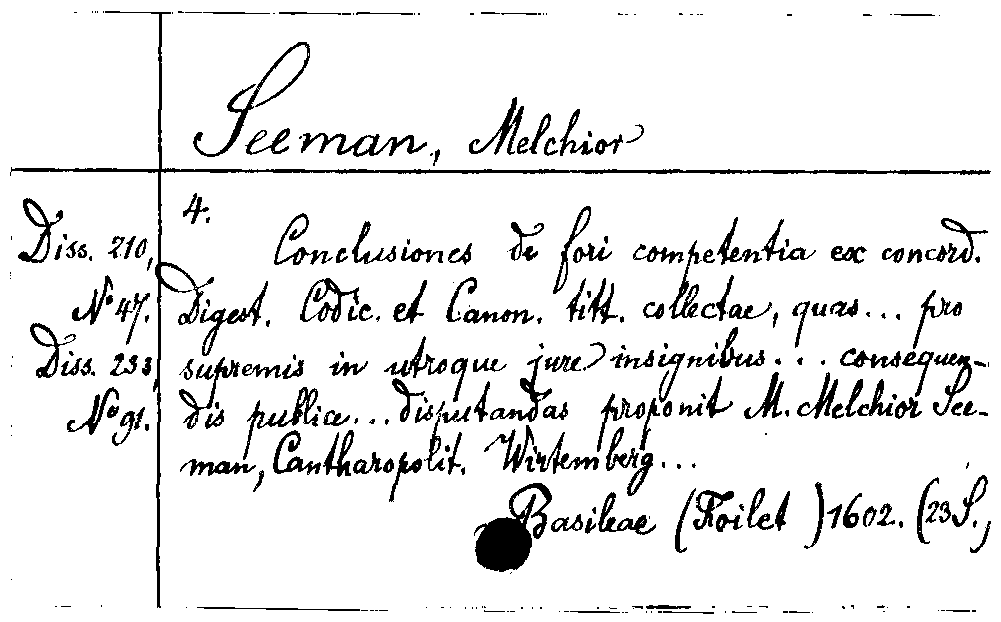 Seeman, Melchior
4.
Diss. 210,
No 47.
Diss. 233,
No 91.
Conclusiones de fori competentia ex concord.
Digest. Codic. et Canon. titt. collectae, quas... pro
supremis in utroque jure insignibus... consequen-
dis publice... disputandas proponit M. Melchior See-
man, Cantharopolit. Wirtemberg...
Basileae (Froilet) 1602. (23 S.,